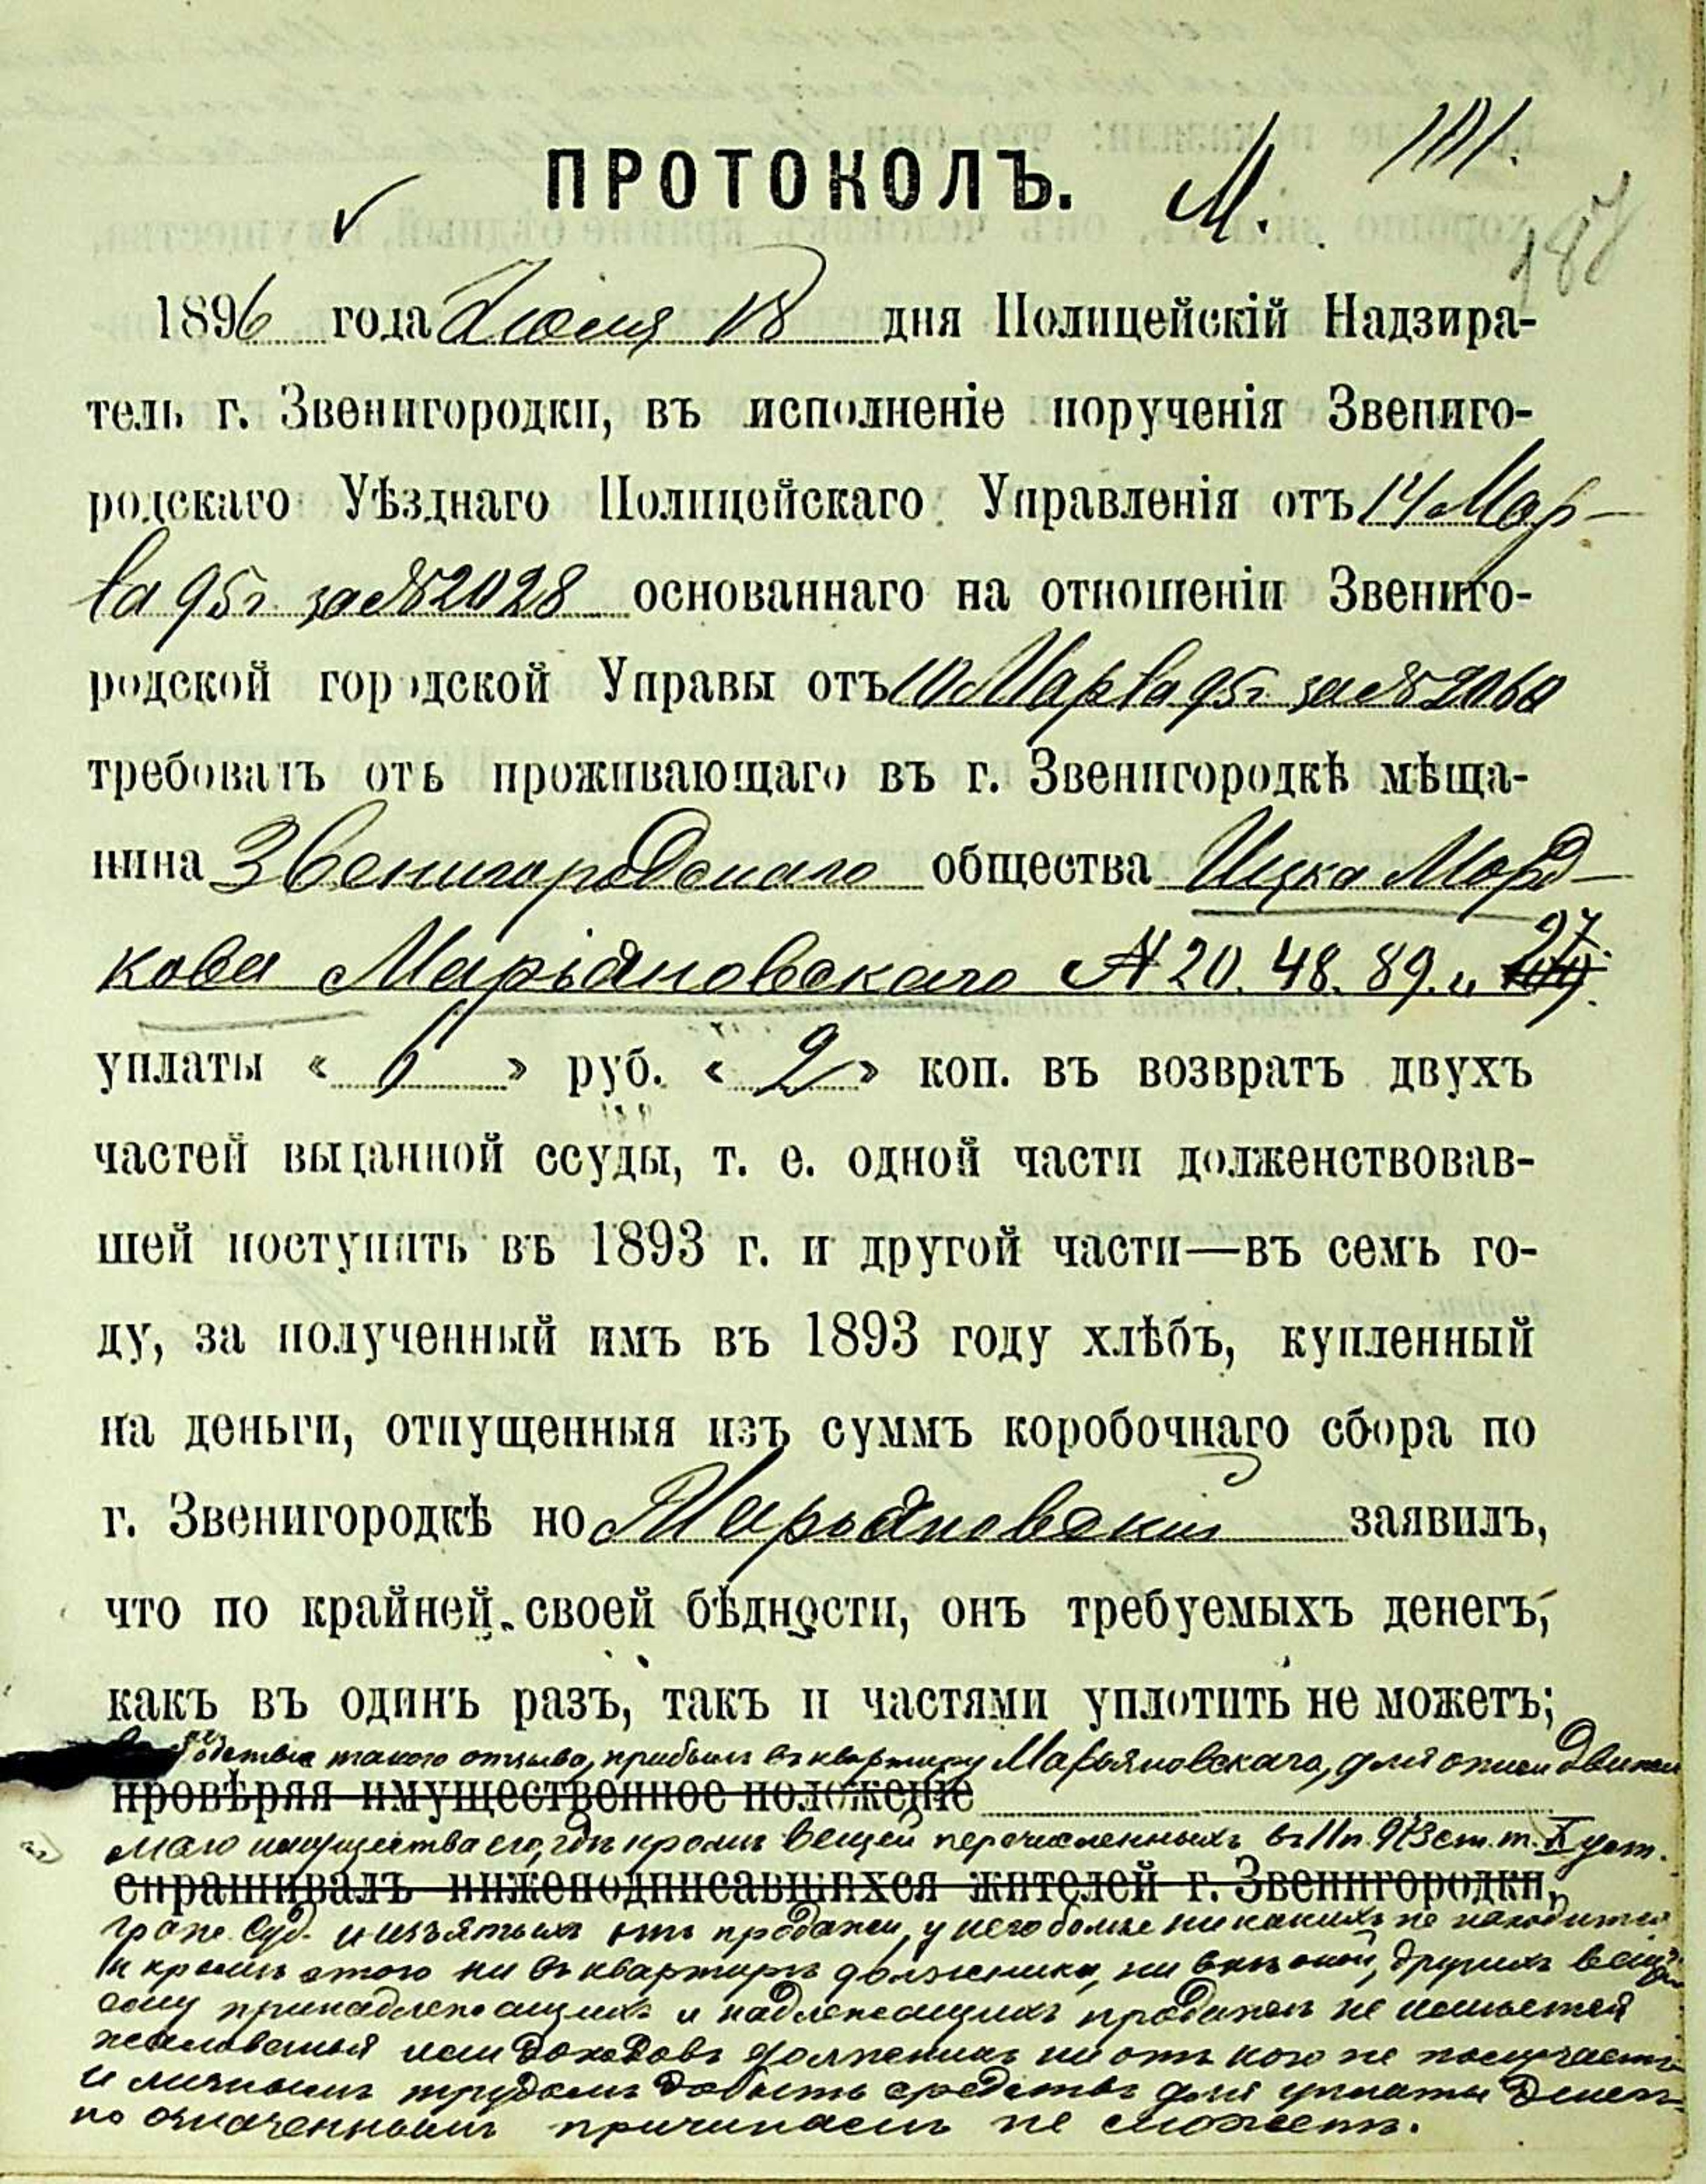 ПРОТОКОЛЪ. М. 101.
187
1896 года Июня 18 дня Полицейскій Надзира-
тель г. Звенигородки, въ исполненіе порученія Звениго-
родскаго Уѣзднаго Полицейскаго Управленія отъ 14 Мар-
та 95 г. за № 2028 основаннаго на отношеніи Звениго-
родской городской Управы отъ 10 Марта 95 г. за № 2060
требовалъ отъ проживающаго въ г. Звенигородкѣ мѣща-
нина Звенигородскаго общества Ицка Морд-
кова Марьяновскаго № 20. 48. 89. и 27.
уплаты « 6 » руб. « 2 » коп. въ возвратъ двухъ
частей выданной ссуды, т. е. одной части долженствовав-
шей поступить въ 1893 г. и другой части—въ семъ го-
ду, за полученный имъ въ 1893 году хлѣбъ, купленный
на деньги, отпущенныя изъ суммъ коробочнаго сбора по
г. Звенигородкѣ но Марьяновскій заявилъ,
что по крайней своей бѣдности, онъ требуемыхъ денегъ,
какъ въ одинъ разъ, такъ и частями уплотить не можетъ;
такого отзыва, прибылъ въ квартиру Марьяновскаго, для описи движи
провѣряя имущественное положеніе
маго имущества его, гдѣ кромѣ вещей перечисленныхъ въ 11 п. 973 ст. т. X уст.
спрашивалъ нижеподписавшихся жителей г. Звенигородки,
граж. Суд. и изъятыхъ отъ продажи, у него болѣе никакихъ не находится
и кромѣ этого ни въ квартирѣ должника, ни внѣ оной, другихъ вещей
ему принадлежащихъ и надлежащихъ продажѣ не имѣется
жалованья или доходовъ должникъ ни отъ кого не получаетъ
и личнымъ трудомъ добыть средствъ для уплаты денегъ
по означеннымъ причинамъ не сможетъ.